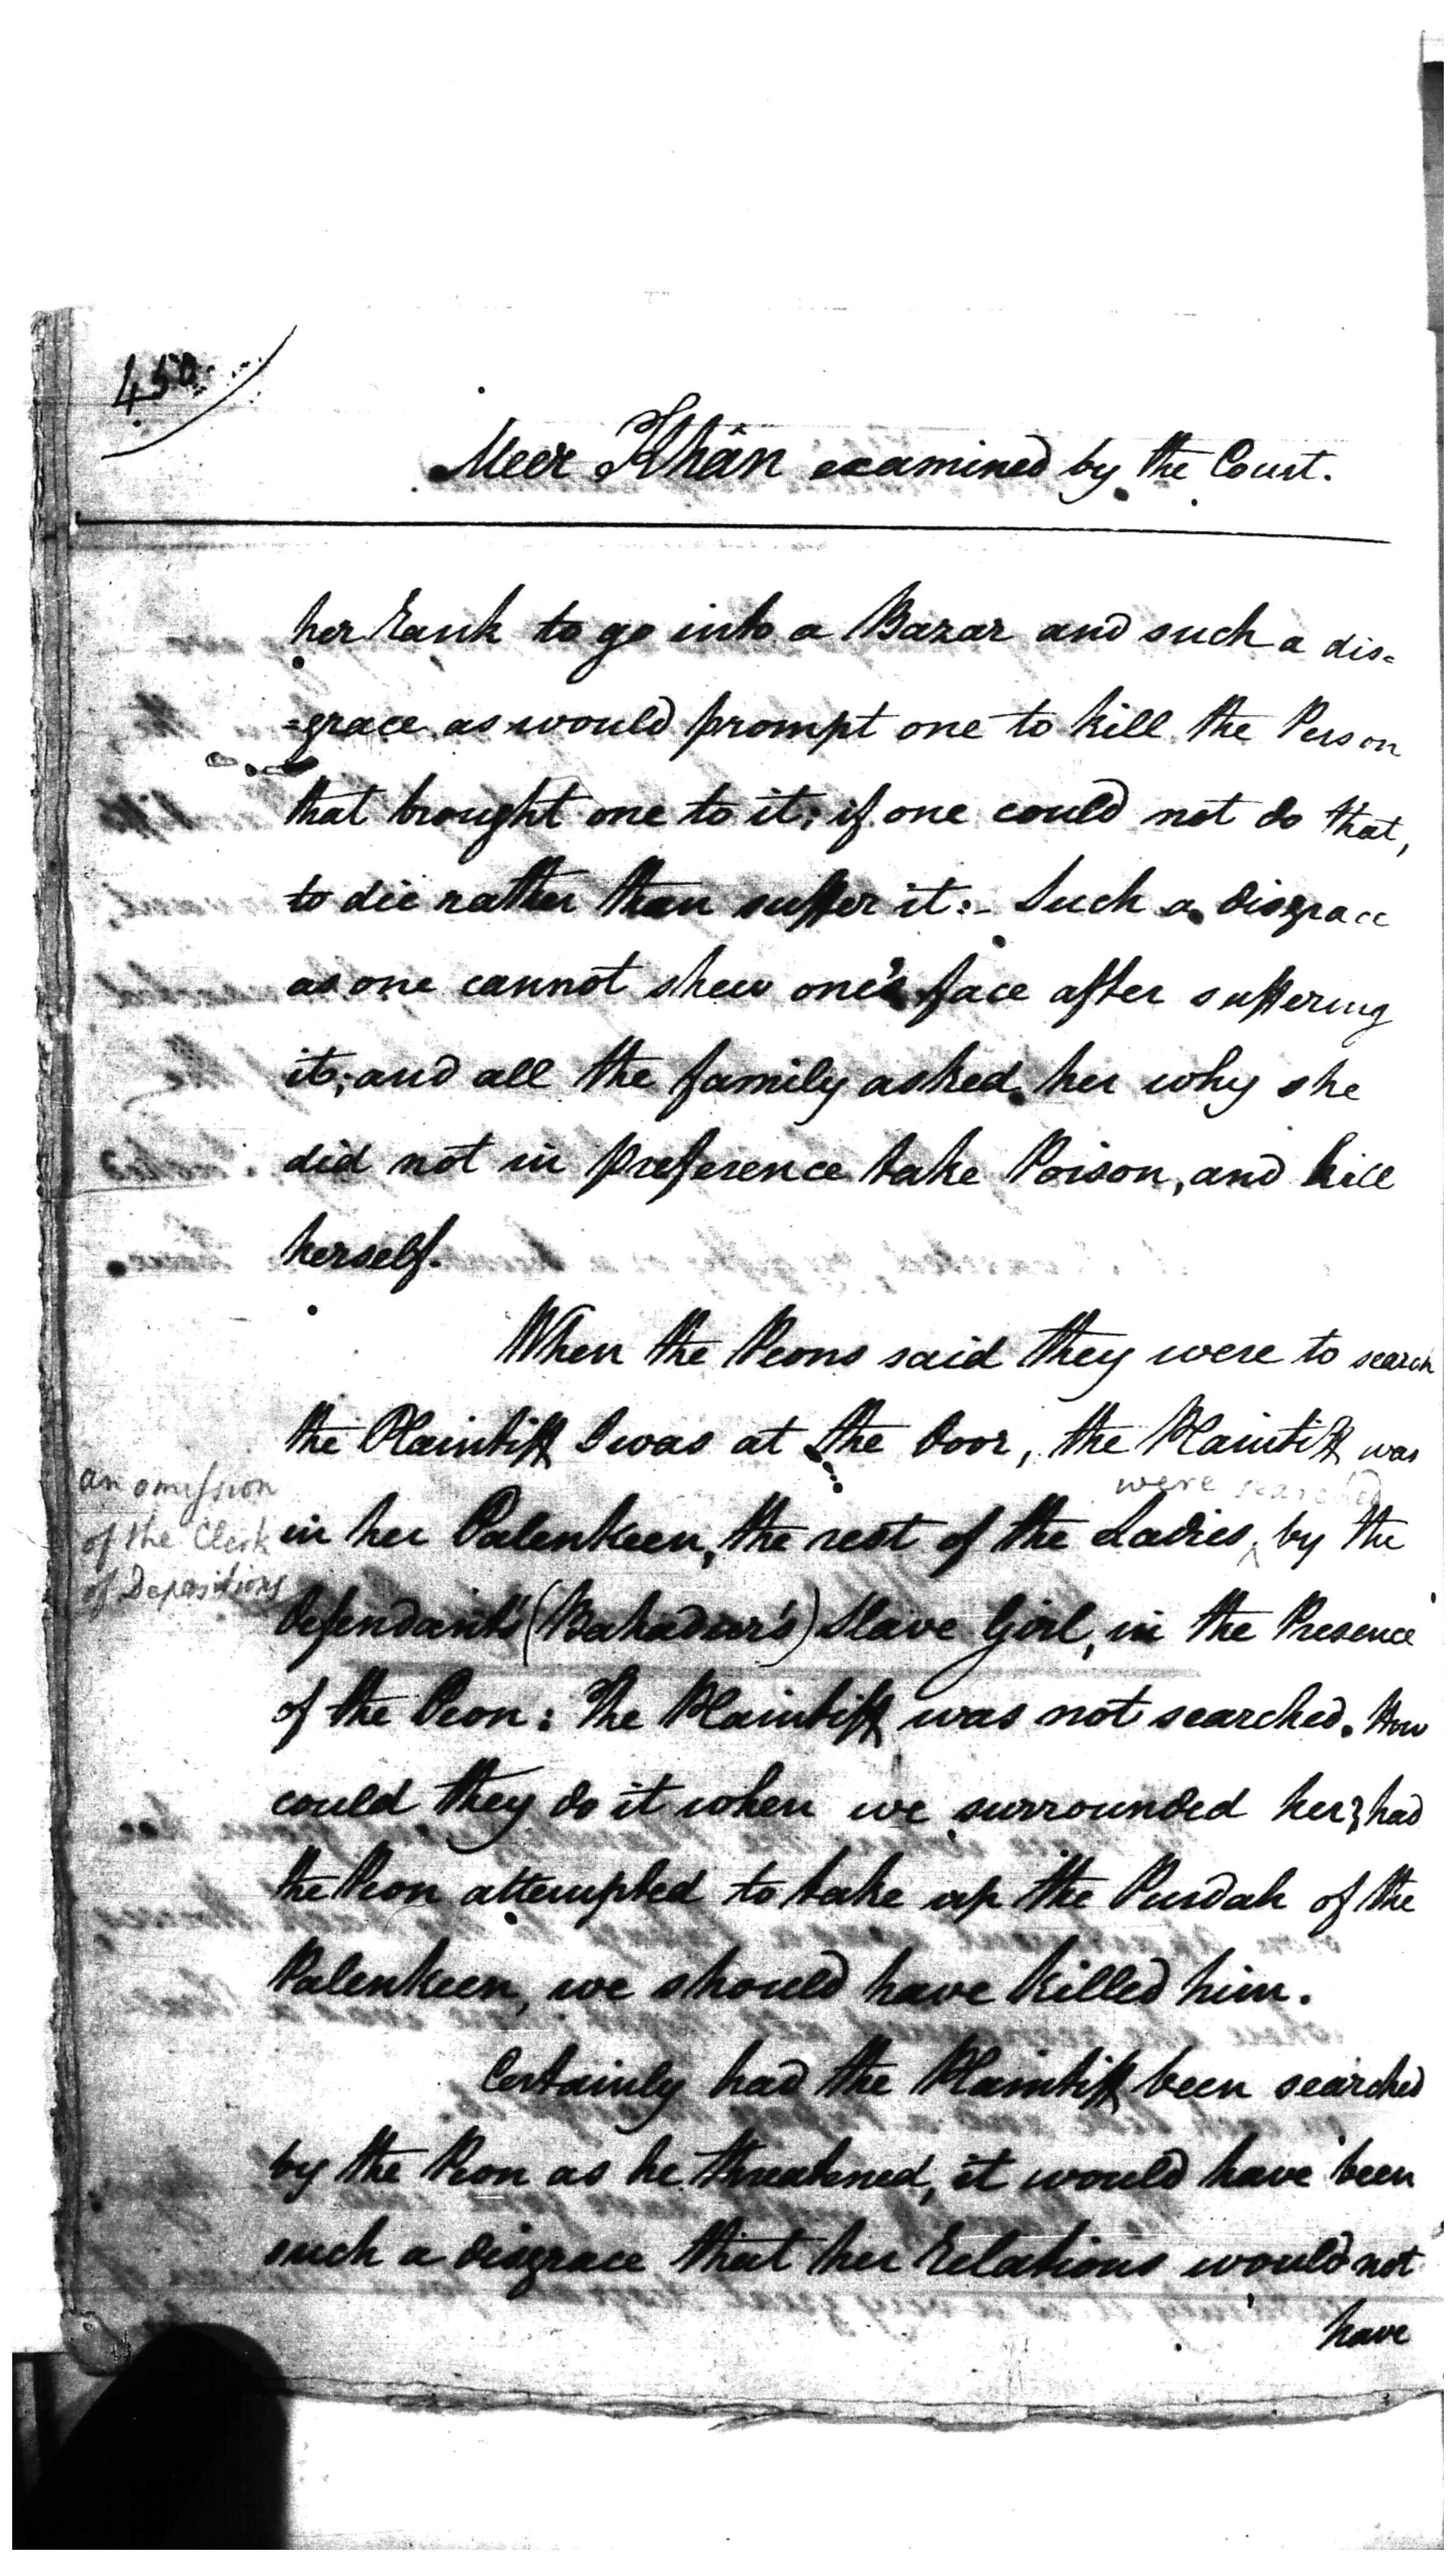 450
Meer Khân examined by the Court.
her Rank to go into a Bazar and such a dis=
=grace as would prompt one to kill the Person
that brought one to it; if one could not do that,
to die rather than suffer it:- Such a disgrace
as one cannot shew one's face after suffering
it; and all the family asked her why she
did not in preference take Poison, and kill
herself.
When the Peons said they were to search
the Plaintiff I was at the Door, the Plaintiff was
were searched
an omission
of the Clerk
of Depositions
in her Palenkeen, the rest of the Ladies ^ by the
Defendant's (Bahadur's) Slave Girl, in the Presence
of the Peon: The Plaintiff was not searched. How
could they do it when we surrounded her; had
the Peon attempted to take up the Purdah of the
Palenkeen, we should have killed him.
Certainly had the Plaintiff been searched
by the Peon as he threatened, it would have been
such a disgrace that her Relations would not
have